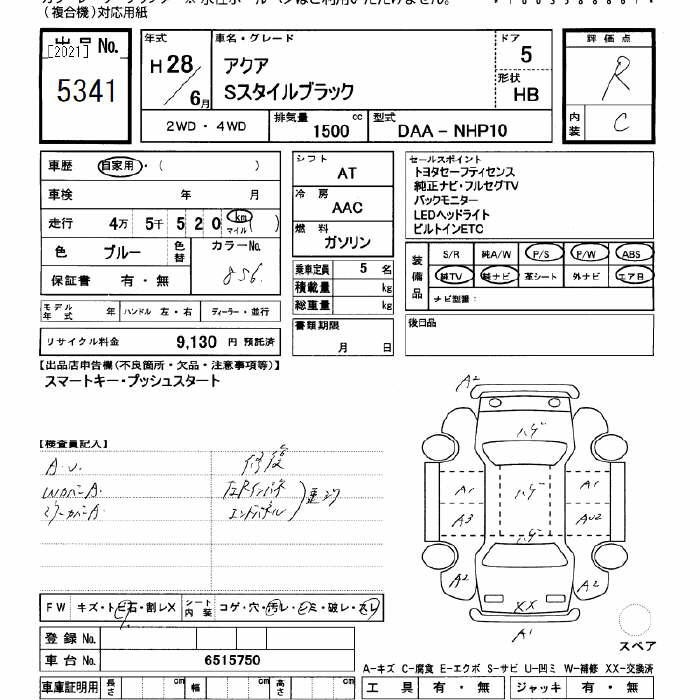 (複合機)対応用紙
出品 No.
[2021]
5341
年式
H 28 / 6月
車名・グレード
アクア
Sスタイルブラック
ドア
5
形状
HB
評価点
R
内装
C
2WD・4WD
排気量
1500 cc
型式
DAA-NHP10
車歴 自家用・( )
車検 年 月
走行 4万 5千 5 2 0 km マイル ( )
色 ブルー 色替 カラーNo.
856
保証書 有・無
モデル年式 年 ハンドル 左・右 ディーラー・並行
リサイクル料金 9,130 円 預託済
シフト
AT
冷房
AAC
燃料
ガソリン
乗車定員 5 名
積載量 kg
総重量 kg
書類期限
月 日
セールスポイント
トヨタセーフティセンス
純正ナビ・フルセグTV
バックモニター
LEDヘッドライト
ビルトインETC
装備品
S/R 純A/W P/S P/W ABS
純TV 純ナビ 革シート 外ナビ エアB
ナビ型番:
後日品
【出品店申告欄(不良箇所・欠品・注意事項等)】
スマートキー・プッシュスタート
【検査員記入】
A.U. 修復
A2
ハゲ
A1 ハゲ A1
A3 AU2
ハゲ
A2 A2
XX
A1
FW キズ・トビ石・割レX シート内装 コゲ・穴・汚レ・シミ・破レ・スレ
登録 No.
車台 No. 6515750
スペア
A-キズ C-腐食 E-エクボ S-サビ U-凹ミ W-補修 XX-交換済
車庫証明用 長さ cm 幅 cm 高さ cm
工具 有・無 ジャッキ 有・無